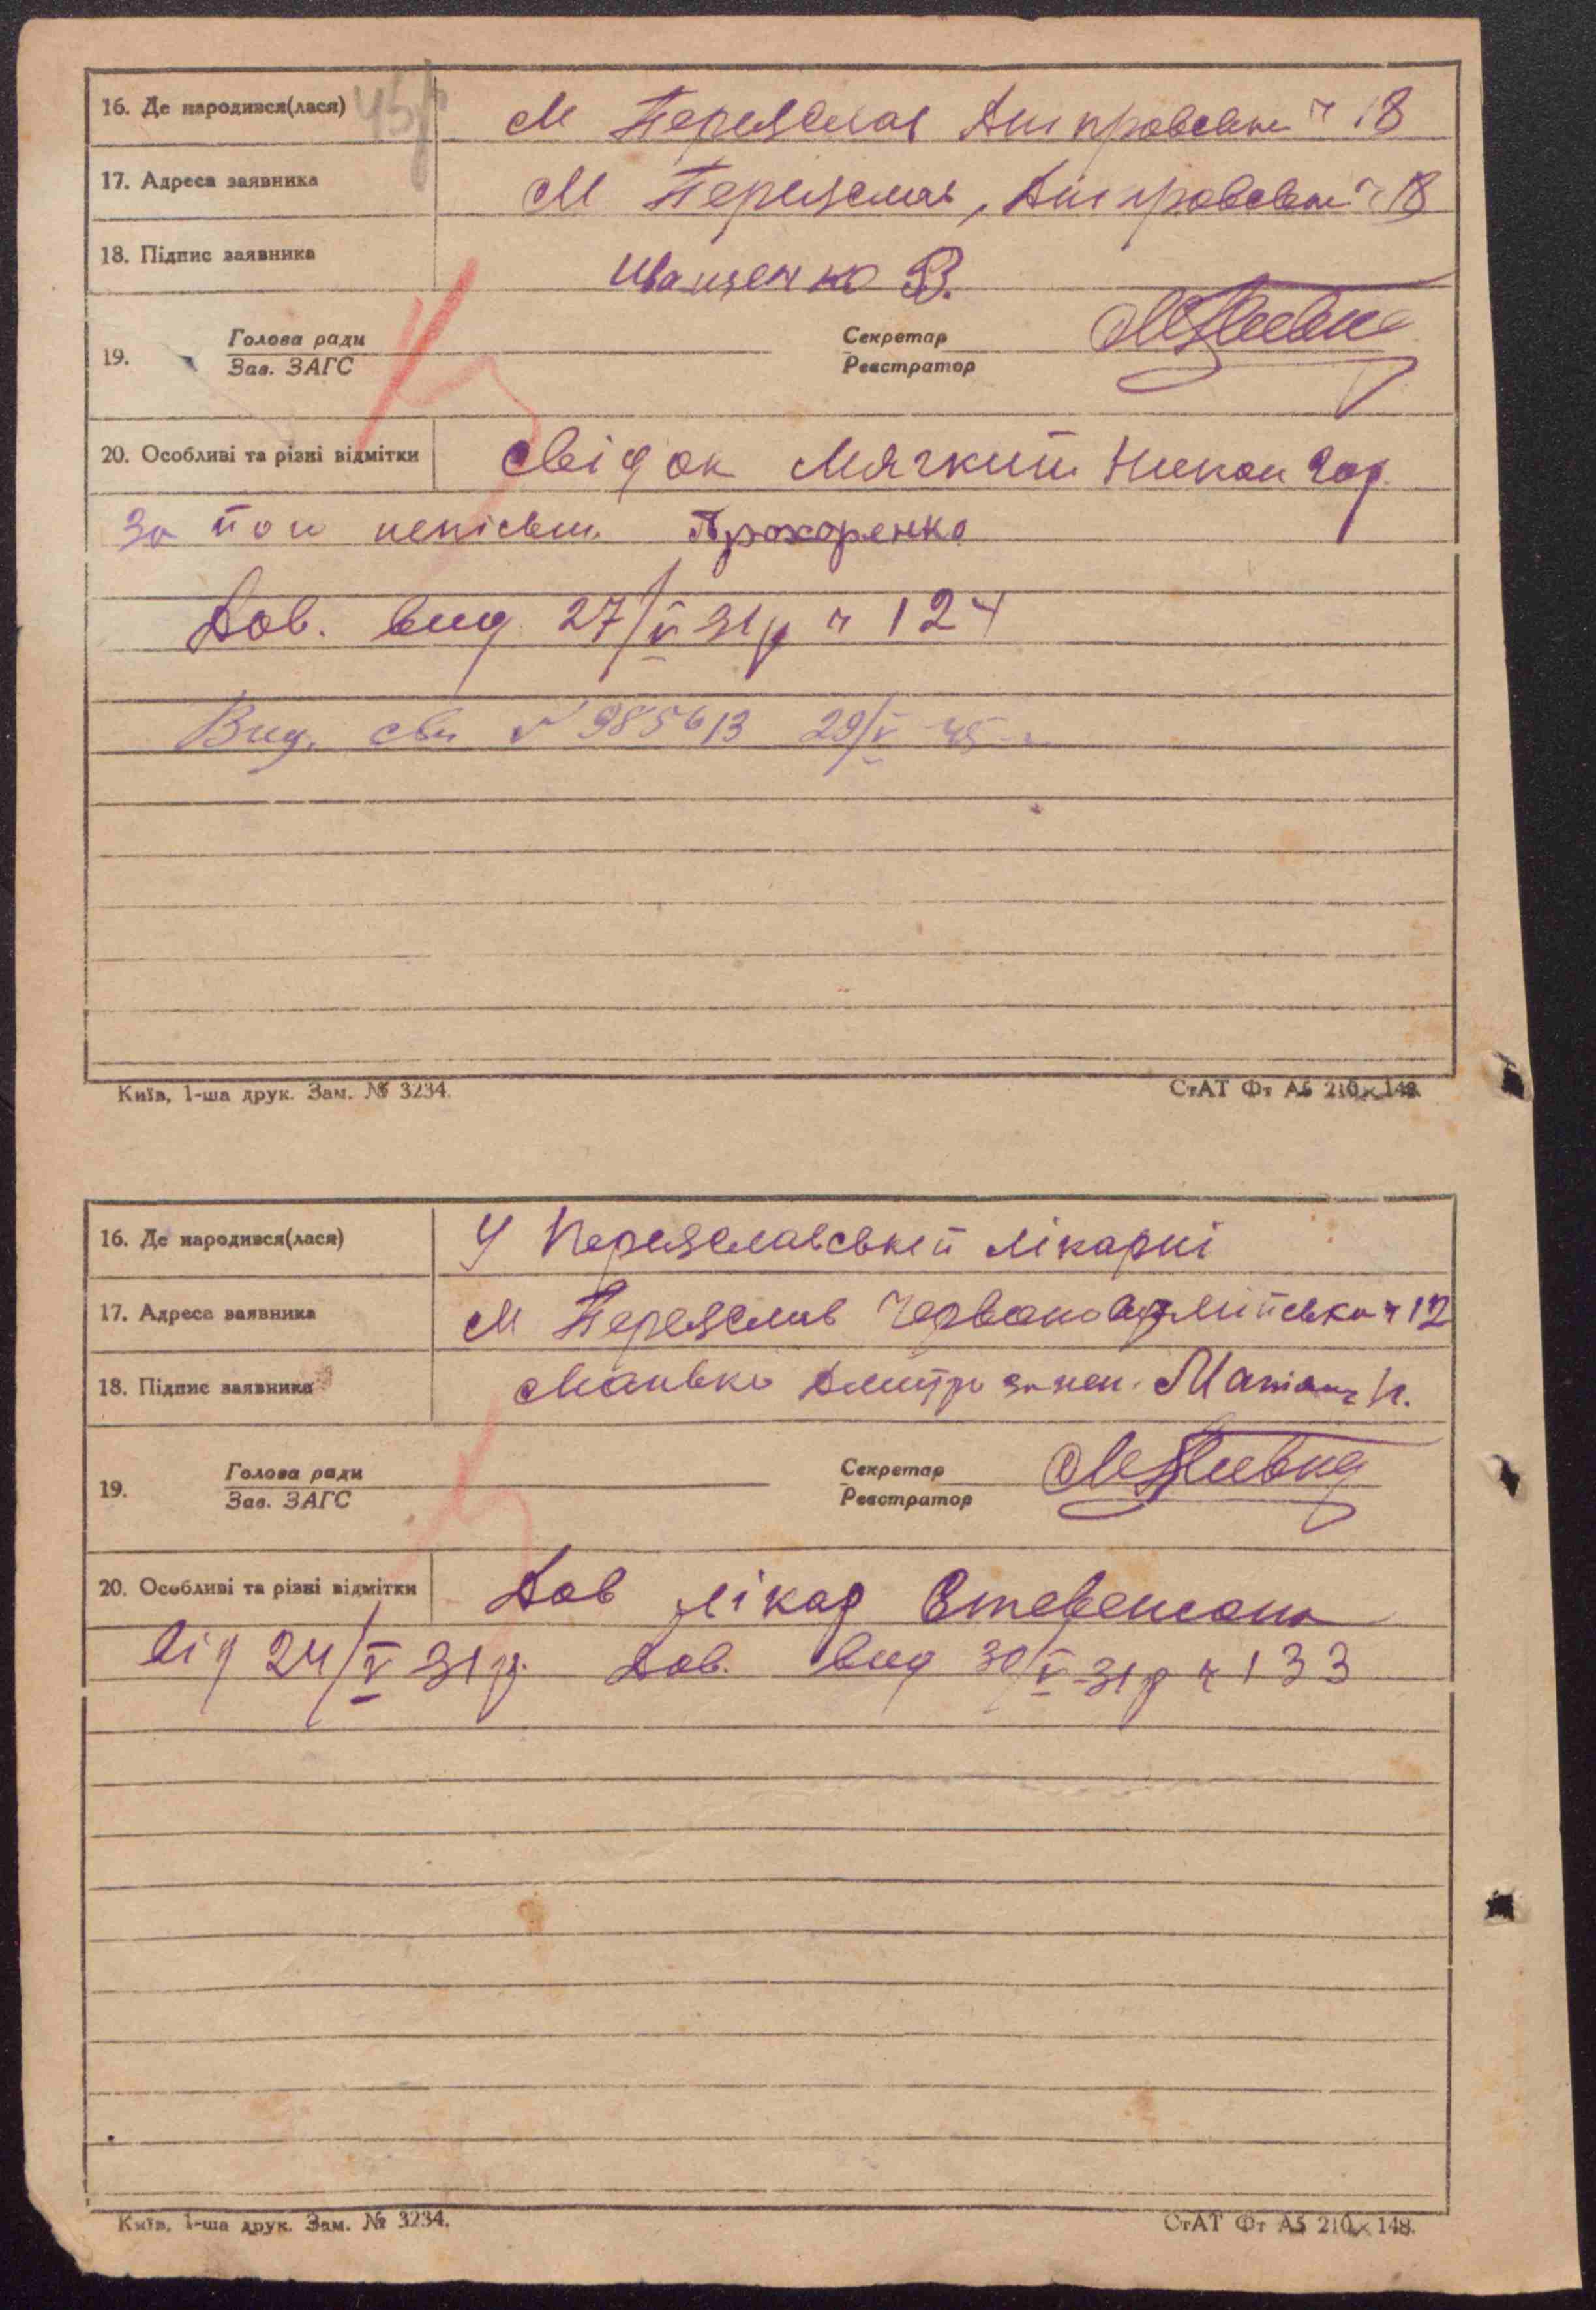 16. Де народився(лася) 45р М Переяслав Дніпровська № 18
17. Адреса заявника М Переяслав, Дніпровська № 18
18. Підпис заявника Иващенко В.
Голова ради Секретар
19.
Зав. ЗАГС Реєстратор
20. Особливі та різні відмітки Свідок Мягкий Никон
за його неписьм. Прохоренко
Дов. вид 27/V 31р № 124
Вид. св. № 985613 29/V 45
Київ, 1-ша друк. Зам. № 3234. СтАТ Фт А5 210×148.
16. Де народився(лася) У Переяславській лікарні
17. Адреса заявника М Переяслав Червоноармійська № 12
18. Підпис заявника Манько Дмитро за неп.
Голова ради Секретар
19.
Зав. ЗАГС Реєстратор
20. Особливі та різні відмітки Дов лікар
від 24/V 31р. Дов. вид 30/V-31р № 133
Київ, 1-ша друк. Зам. № 3234. СтАТ Фт А5 210×148.